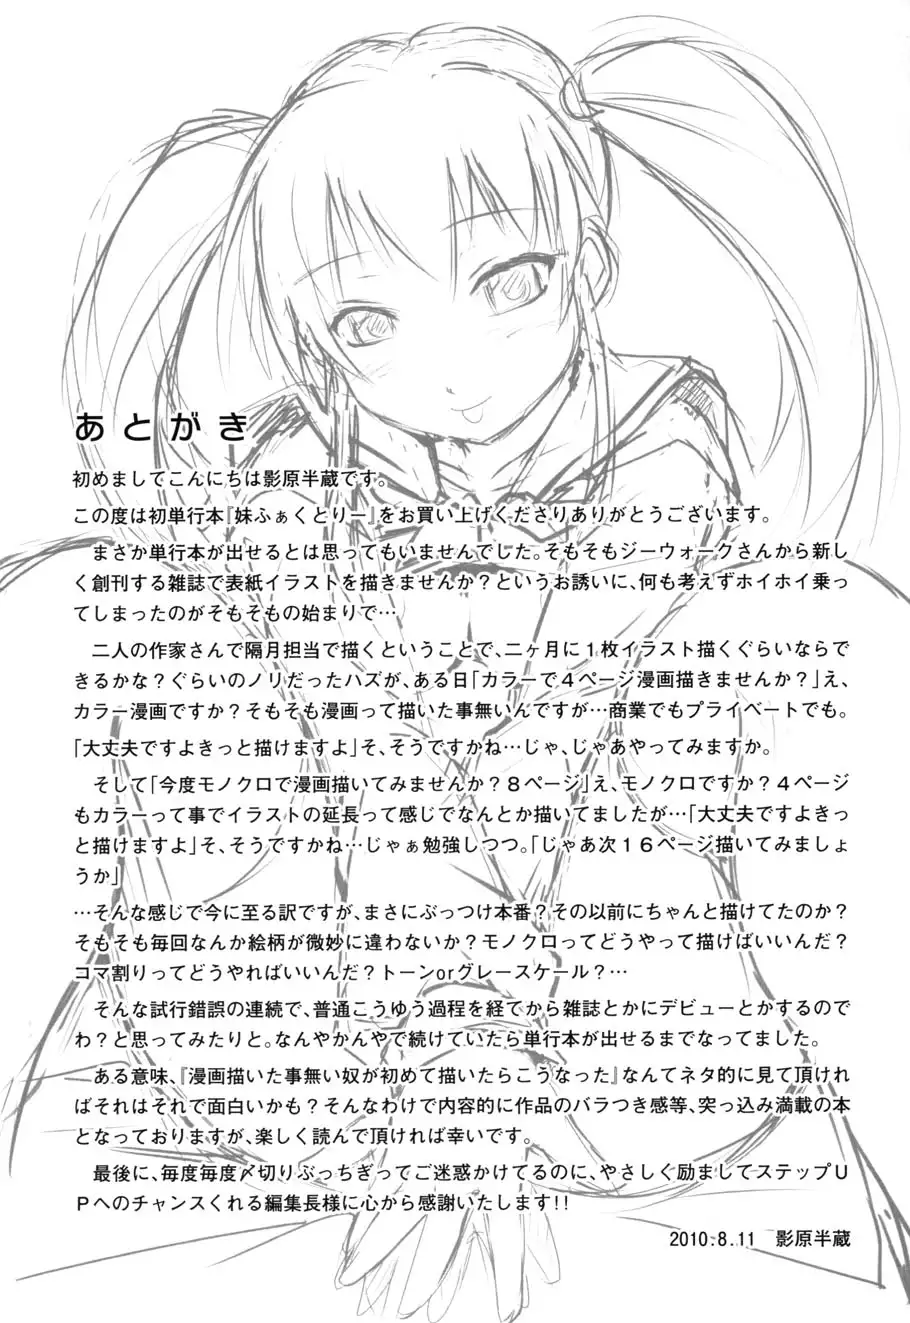 あとがき
初めましてこんにちは影原半蔵です。
この度は初単行本『妹ふぁくとりー』をお買い上げくださりありがとうございます。
まさか単行本が出せるとは思ってもいませんでした。そもそもジーウォークさんから新し
く創刊する雑誌で表紙イラストを描きませんか？というお誘いに、何も考えずホイホイ乗っ
てしまったのがそもそもの始まりで…
二人の作家さんで隔月担当で描くということで、二ヶ月に１枚イラスト描くぐらいならで
きるかな？ぐらいのノリだったハズが、ある日「カラーで４ページ漫画描きませんか？」え、
カラー漫画ですか？そもそも漫画って描いた事無いんですが…商業でもプライベートでも。
「大丈夫ですよきっと描けますよ」そ、そうですかね…じゃ、じゃあやってみますか。
そして「今度モノクロで漫画描いてみませんか？８ページ」え、モノクロですか？４ページ
もカラーって事でイラストの延長って感じでなんとか描いてましたが…「大丈夫ですよきっ
と描けますよ」そ、そうですかね…じゃぁ勉強しつつ。「じゃあ次１６ページ描いてみましょ
うか」
…そんな感じで今に至る訳ですが、まさにぶっつけ本番？その以前にちゃんと描けてたのか？
そもそも毎回なんか絵柄が微妙に違わないか？モノクロってどうやって描けばいいんだ？
コマ割りってどうやればいいんだ？トーンorグレースケール？…
そんな試行錯誤の連続で、普通こうゆう過程を経てから雑誌とかにデビューとかするので
わ？と思ってみたりと。なんやかんやで続けていたら単行本が出せるまでなってました。
ある意味、『漫画描いた事無い奴が初めて描いたらこうなった』なんてネタ的に見て頂けれ
ばそれはそれで面白いかも？そんなわけで内容的に作品のバラつき感等、突っ込み満載の本
となっておりますが、楽しく読んで頂ければ幸いです。
最後に、毎度毎度〆切りぶっちぎってご迷惑かけてるのに、やさしく励ましてステップＵ
Ｐへのチャンスくれる編集長様に心から感謝いたします!!
2010.8.11　影原半蔵